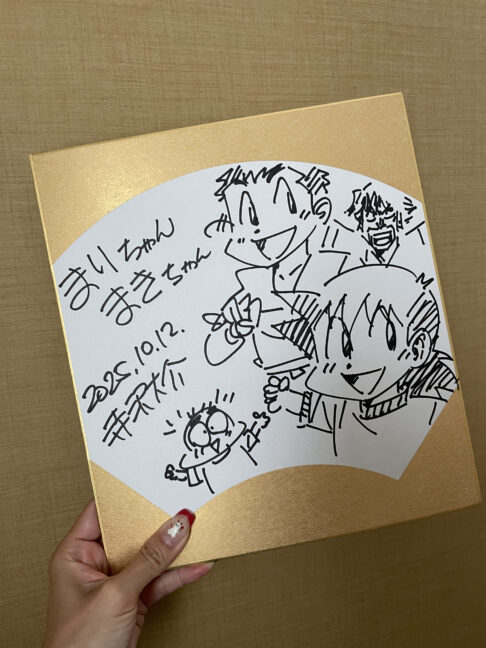 まりちゃん
まきちゃん
2025.10.12.